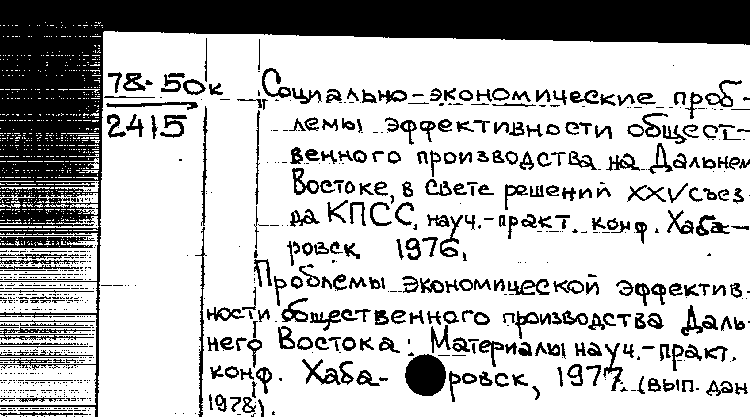 78-50к
2415
Социально-экономические проб-
лемы эффективности общест-
венного производства на Дальнем
Востоке в свете решений XXV съез-
да КПСС, науч.-практ. конф. Хаба-
ровск 1976.
Проблемы экономической эффектив-
ности общественного производства Даль-
него Востока: Материалы науч.-практ.
конф. Хаба-ровск, 1977. (вып. дан
1978).